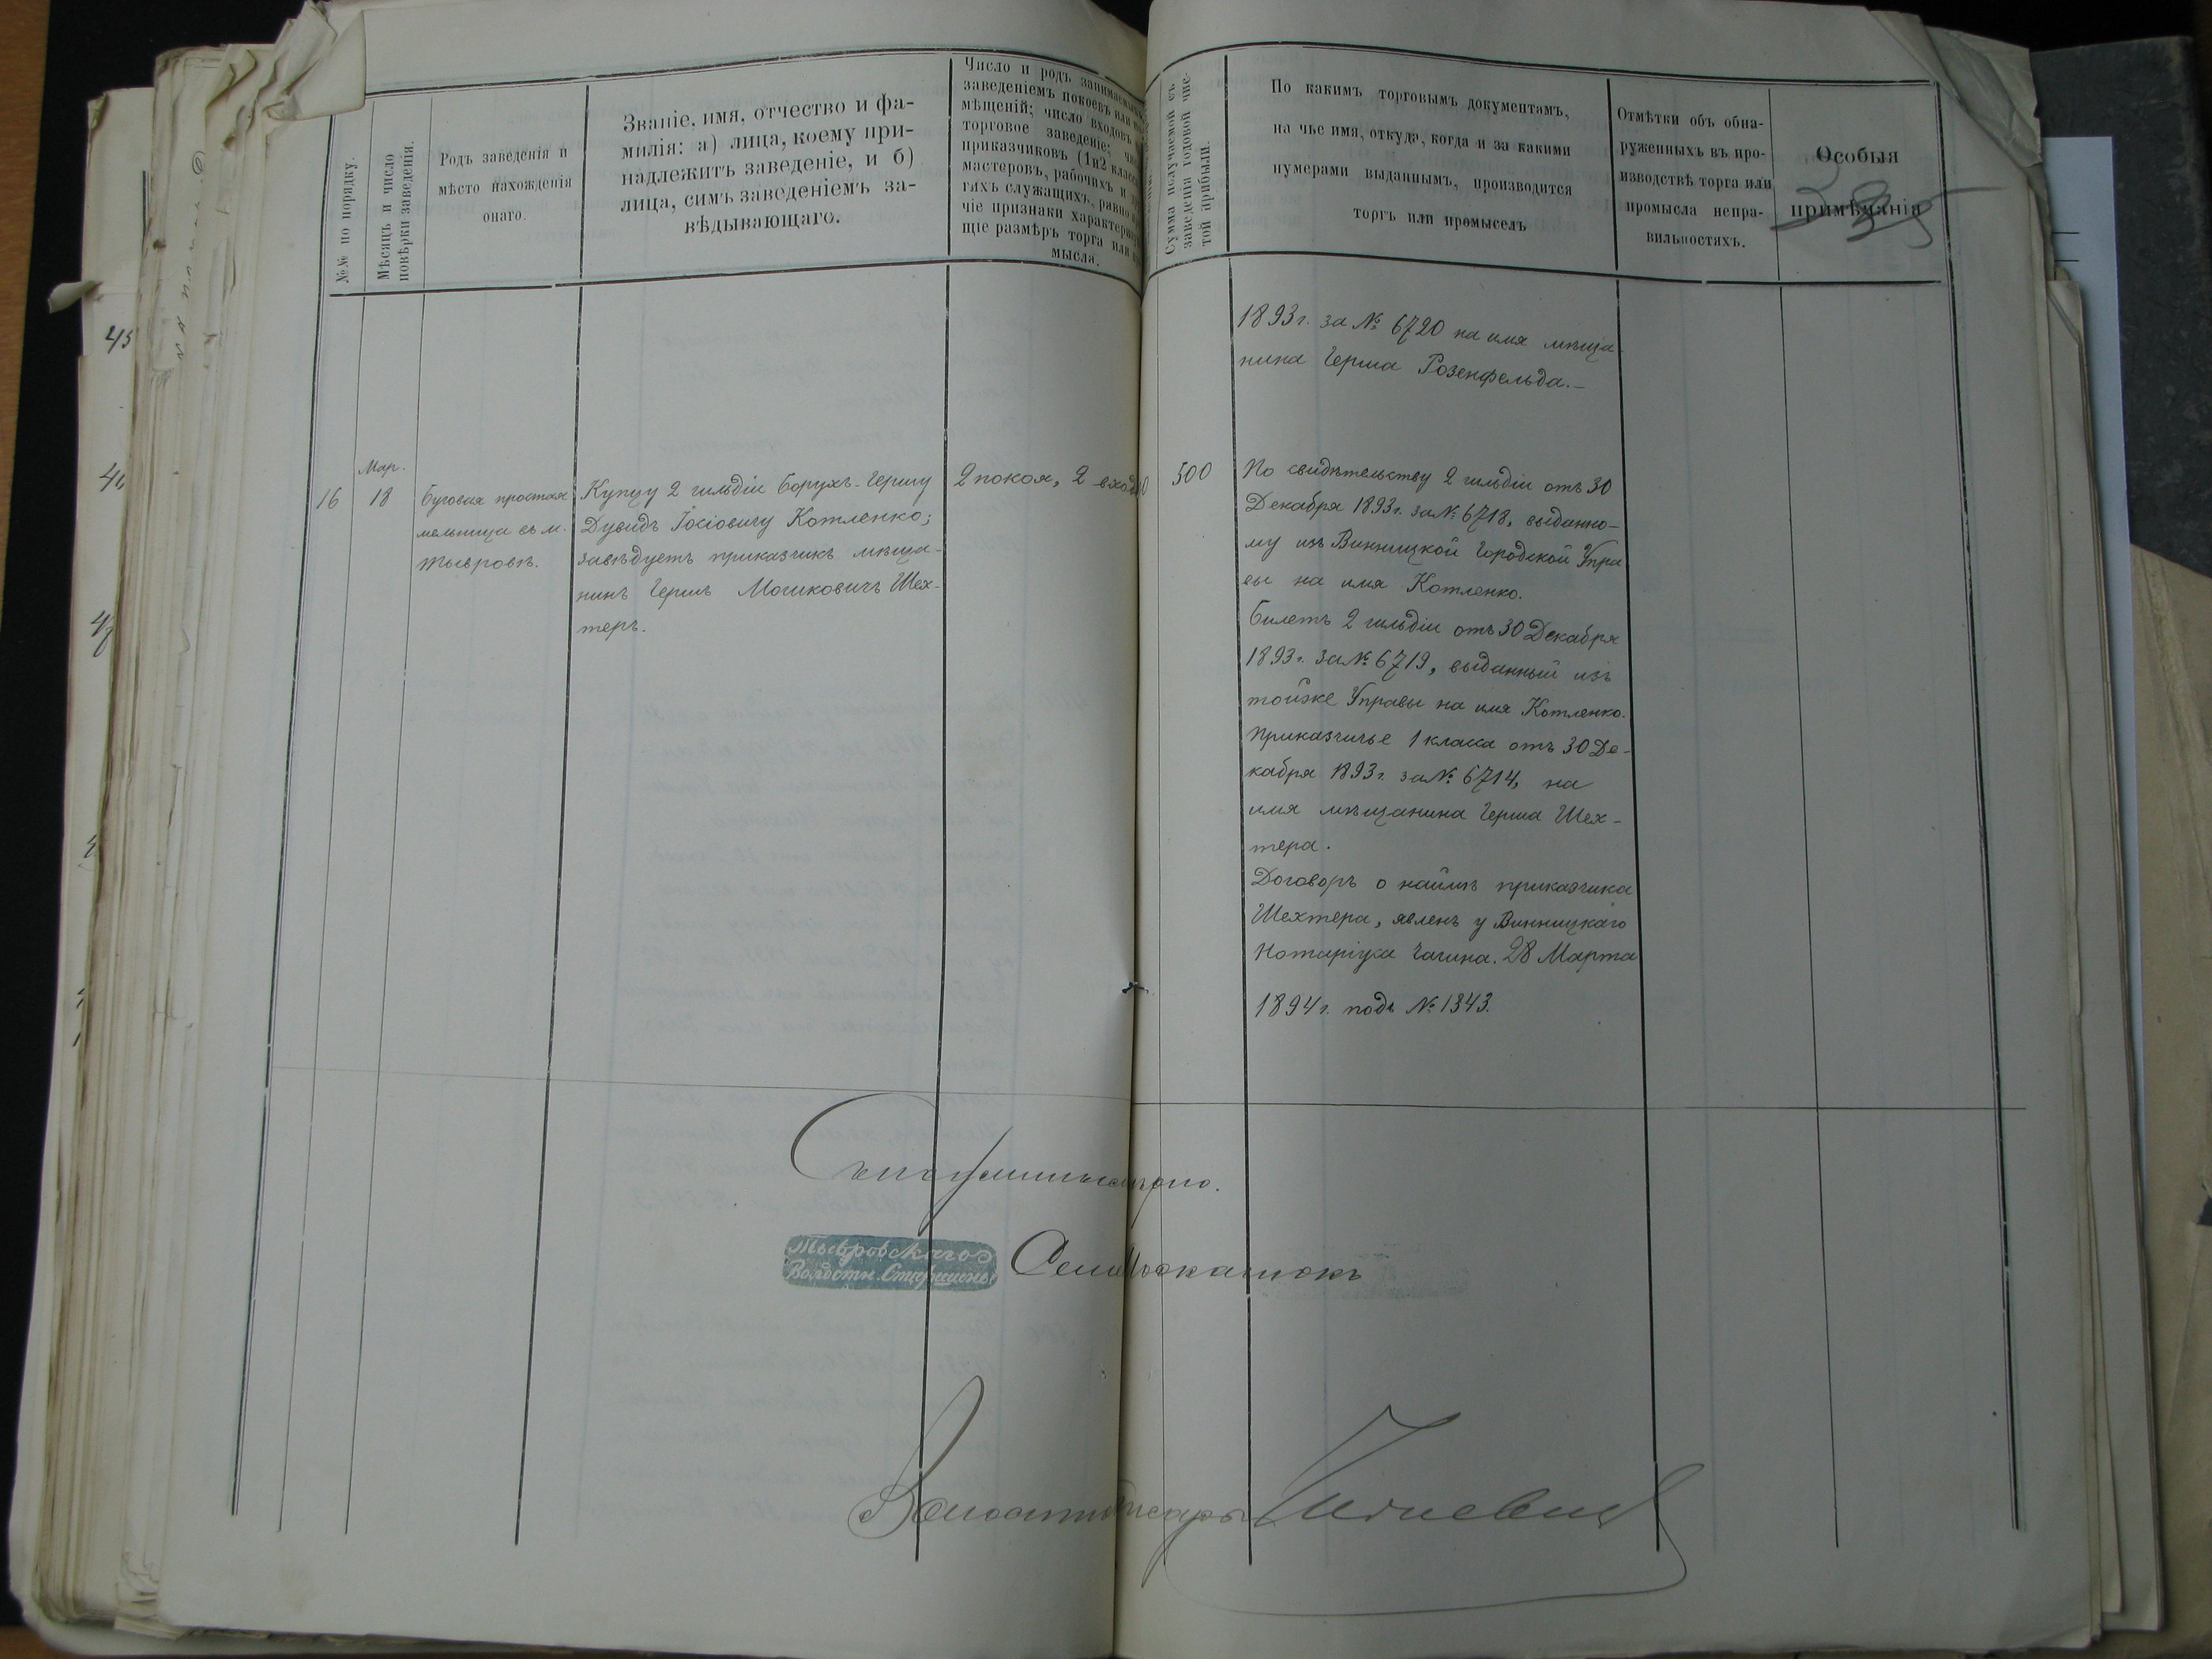 №№ по порядку.
Мѣсяцъ и число
повѣрки заведенія.
Родъ заведенія и
мѣсто нахожденія
онаго.
Званіе, имя, отчество и фа-
милія: а) лица, коему при-
надлежитъ заведеніе, и б)
лица, симъ заведеніемъ за-
вѣдывающаго.
Число и родъ
заведеніемъ покоевъ или
мѣщеній; число входовъ
торговое заведеніе;
приказчиковъ (1и2
мастеровъ, рабочихъ и
гихъ служащихъ, равно
чіе признаки
щіе размѣръ торга или
мысла.
Мар.
16
18
Буговая простая
мельница въ м.
Тывровѣ.
Купцу 2 гильдіи Борухъ-Гершу
Дувидъ Іосіовичу Котленко;
завѣдуетъ приказчикъ мѣща-
нинъ Гершъ Мошковичъ Шех-
теръ.
2 покоя, 2
Сумма получаемой съ
заведенія годовой чис-
той прибыли.
По какимъ торговымъ документамъ,
на чье имя, откуда, когда и за какими
нумерами выданнымъ, производится
торгъ или промыселъ
Отмѣтки объ обна-
руженныхъ въ про-
изводствѣ торга или
промысла непра-
вильностяхъ.
Особыя
примѣчанія
1893г. за № 6720 на имя мѣща-
нина Герша Розенфельда.—
500
По свидѣтельству 2 гильдіи отъ 30
Декабря 1893г. за № 6718, выданно-
му изъ Винницкой Городской Упра
вы на имя Котленко.
Билетъ 2 гильдіи отъ 30 Декабря
1893г. за № 6719, выданный изъ
тойже Управы на имя Котленко.
Приказчичье 1 класса отъ 30 Де-
кабря 1893г. за № 6714, на
имя мѣщанина Герша Шех-
тера.
Договоръ о наймѣ приказчика
Шехтера, явленъ у Винницкаго
Нотаріуса 28 Марта
1894г. подъ № 1343.
Тывровскаго
Волостн. Старшины